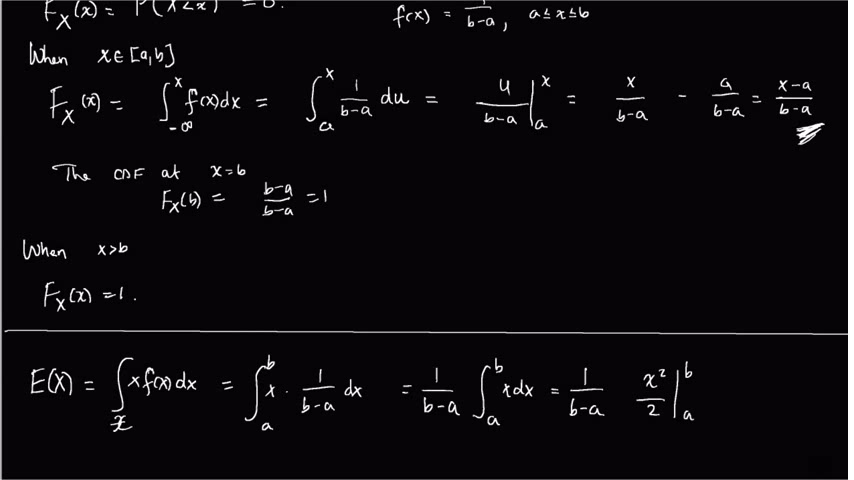 F_X(x) = P(X<x) = 0.
f(x) = 1/(b-a), a≤x≤b
When x∈[a,b]
F_X(x) = ∫_{-∞}^{x} f(x)dx = ∫_a^x 1/(b-a) du = u/(b-a) |_a^x = x/(b-a) - a/(b-a) = (x-a)/(b-a)
The CDF at x=b
F_X(b) = (b-a)/(b-a) = 1
When x>b
F_X(x) = 1.
E(X) = ∫_x x f(x) dx = ∫_a^b x · 1/(b-a) dx = 1/(b-a) ∫_a^b x dx = 1/(b-a) x²/2 |_a^b